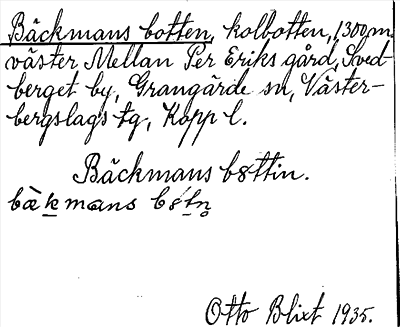 Bäckmans botten, kolbotten, 1300 m.
väster Mellan Per Eriks gård, Sved-
berget by, Grangärde sn, Väster-
bergslags tg, Kopp l.
Bäckmans b8ttin.
bàkmans b8tn̥
Otto Blixt 1935.